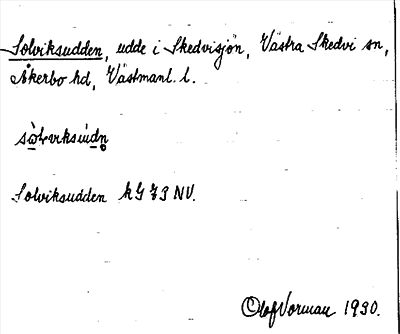 Solviksudden, udde i Skedvisjön, Västra Skedvi sn,
Åkerbo hd, Västmanl. l.
Solviksudden kG 73 NV.
Olof Vorman 1930.